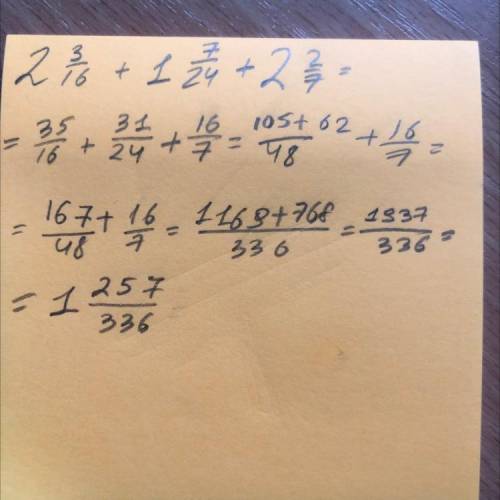 2 3/16 + 1 7/24 + 2 2/7 =
= 35/16 + 31/24 + 16/7 = 105+62/48 + 16/7 =
= 167/48 + 16/7 = 1169+768/336 = 1937/336 =
= 1 257/336